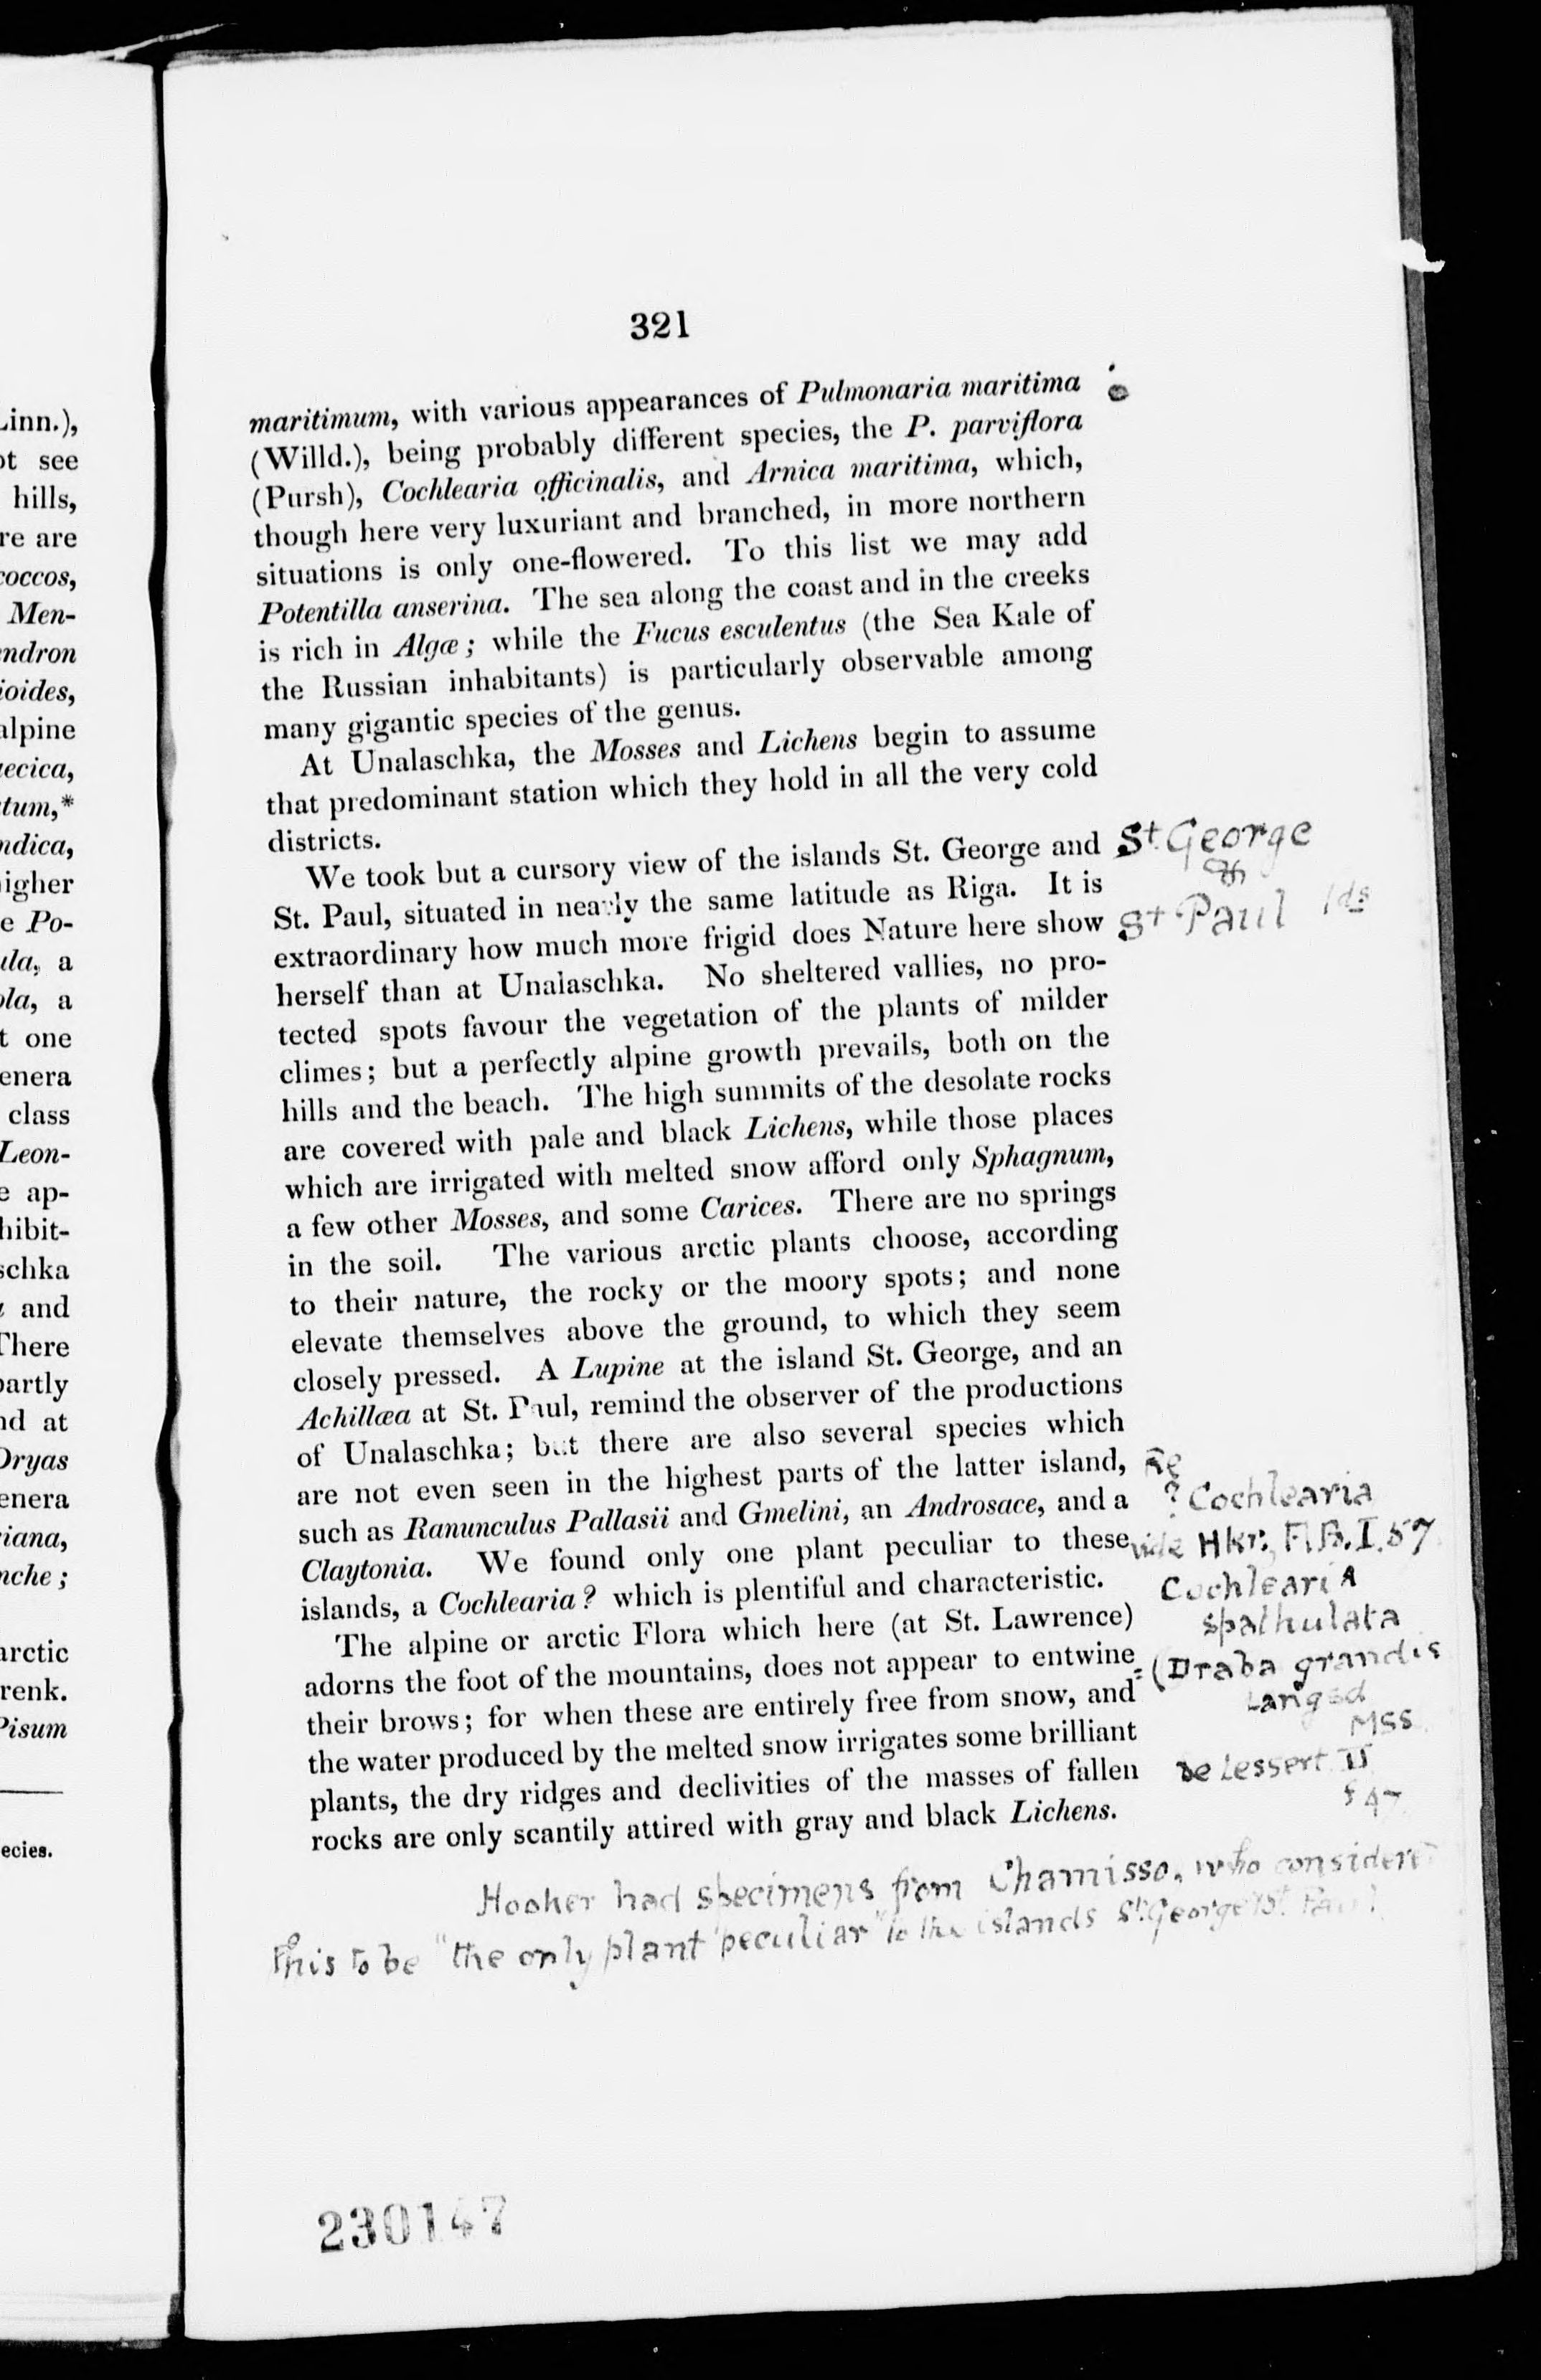 321
maritimum, with various appearances of Pulmonaria maritima
(Willd.), being probably different species, the P. parviflora
(Pursh), Cochlearia officinalis, and Arnica maritima, which,
though here very luxuriant and branched, in more northern
situations is only one-flowered. To this list we may add
Potentilla anserina. The sea along the coast and in the creeks
is rich in Algæ; while the Fucus esculentus (the Sea Kale of
the Russian inhabitants) is particularly observable among
many gigantic species of the genus.
At Unalaschka, the Mosses and Lichens begin to assume
that predominant station which they hold in all the very cold
districts.
We took but a cursory view of the islands St. George and
St. Paul, situated in nearly the same latitude as Riga. It is
extraordinary how much more frigid does Nature here show
herself than at Unalaschka. No sheltered vallies, no pro-
tected spots favour the vegetation of the plants of milder
climes; but a perfectly alpine growth prevails, both on the
hills and the beach. The high summits of the desolate rocks
are covered with pale and black Lichens, while those places
which are irrigated with melted snow afford only Sphagnum,
a few other Mosses, and some Carices. There are no springs
in the soil. The various arctic plants choose, according
to their nature, the rocky or the moory spots; and none
elevate themselves above the ground, to which they seem
closely pressed. A Lupine at the island St. George, and an
Achillæa at St. Paul, remind the observer of the productions
of Unalaschka; but there are also several species which
are not even seen in the highest parts of the latter island,
such as Ranunculus Pallasii and Gmelini, an Androsace, and a
Claytonia. We found only one plant peculiar to these
islands, a Cochlearia? which is plentiful and characteristic.
The alpine or arctic Flora which here (at St. Lawrence)
adorns the foot of the mountains, does not appear to entwine
their brows; for when these are entirely free from snow, and
the water produced by the melted snow irrigates some brilliant
plants, the dry ridges and declivities of the masses of fallen
rocks are only scantily attired with gray and black Lichens.
St. George
&
St Paul Ids
Re
? Cochlearia
vide Hkr. Fl.B.I.57
Cochlearia
spathulata
= (Draba grandis
Langsd
MSS
De Lessert II
t 47
Hooker had specimens from Chamisso, who considered
this to be "the only plant peculiar" to the islands St. George & St. Paul
230147
Linn.),
ot see
hills,
re are
coccos,
Men-
endron
ioides,
alpine
aecica,
tum,*
ndica,
igher
e Po-
ula, a
ola, a
t one
enera
class
Leon-
e ap-
hibit-
schka
and
There
partly
nd at
Dryas
enera
riana,
nche;
arctic
renk.
Pisum
ecies.